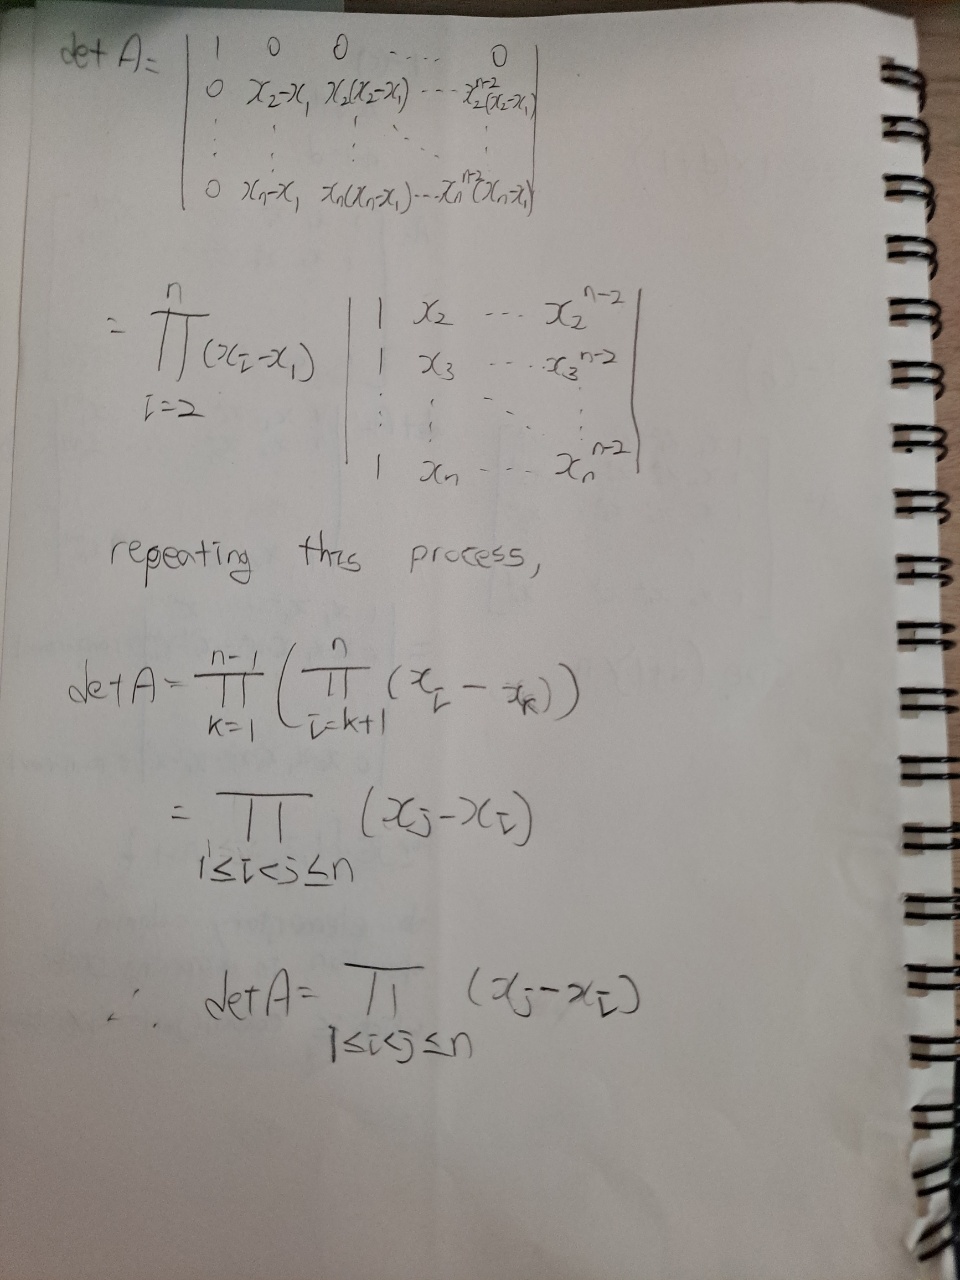 det A= | 1 0 0 ..... 0 |
| 0 x₂-x₁ x₂(x₂-x₁) ... x₂ⁿ⁻²(x₂-x₁) |
| ⋮ ⋮ ⋮ ⋱ ⋮ |
| 0 xₙ-x₁ xₙ(xₙ-x₁) ... xₙⁿ⁻²(xₙ-x₁) |
= ∏_{i=2}^{n} (xᵢ-x₁) | 1 x₂ ... x₂ⁿ⁻² |
| 1 x₃ ... x₃ⁿ⁻² |
| ⋮ ⋮ ⋱ ⋮ |
| 1 xₙ ... xₙⁿ⁻² |
repeating this process,
det A = ∏_{k=1}^{n-1} ( ∏_{i=k+1}^{n} (xᵢ - xₖ) )
= ∏_{1≤i<j≤n} (xⱼ-xᵢ)
∴ det A = ∏_{1≤i<j≤n} (xⱼ-xᵢ)